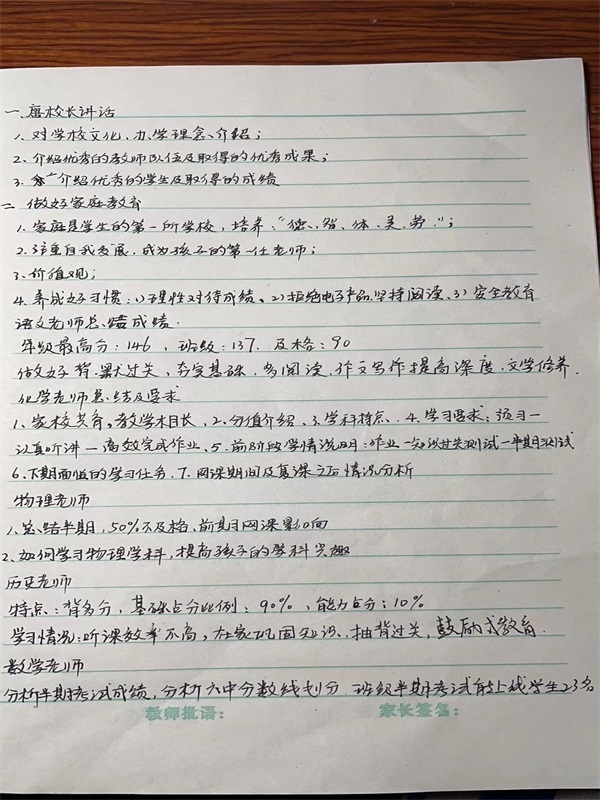 一、唐校长讲话
1、对学校文化、办学理念、介绍；
2、介绍优秀的教师队伍及取得的优秀成果；
3、介绍优秀的学生及取得的成绩
二、做好家庭教育
1、家庭是学生的第一所学校，培养：“德、智、体、美、劳”；
2、注重自我发展，成为孩子的第一任老师；
3、价值观；
4、养成好习惯：1)理性对待成绩、2)拒绝电子产品、坚持阅读、3)安全教育
语文老师总结成绩.
年级最高分：146，班级：137. 及格：90
做好背、默过关，夯实基础，多阅读，作文写作提高深度、文学修养.
化学老师总结及要求
1、家校共育，教学相长，2、分值介绍、3、学科特点、4、学习要求：预习—
认真听讲—高效完成作业、5、前阶段学情说明：作业—过关测试—半期测试
6、下期面临的学习任务、7、网课期间及复课之后情况分析
物理老师
1、总结半期，50%不及格、前期网课影响
2、如何学习物理学科，提高孩子的学科兴趣
历史老师
特点：背多分，基础占分比例：90%、能力占分：10%
学习情况：听课效率不高，在家巩固知识、抽背过关，鼓励式教育.
数学老师
分析半期考试成绩，分析六中分数线划分 班级半期考试前上线学生23名
教师批语： 家长签名：